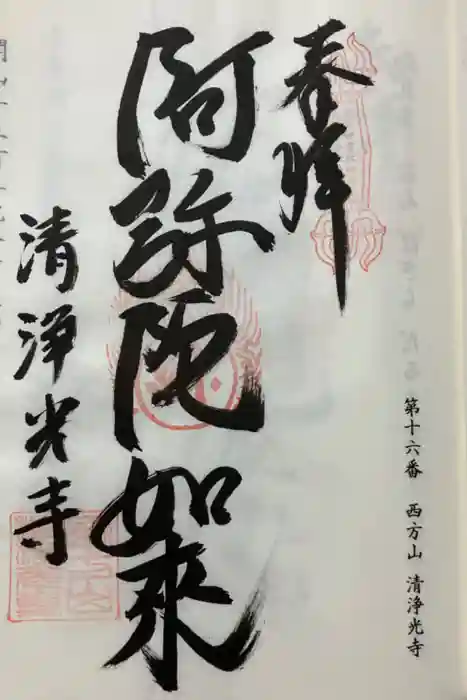 奉拝
第十六番 西方山 清浄光寺
阿弥陀如来
清浄光寺